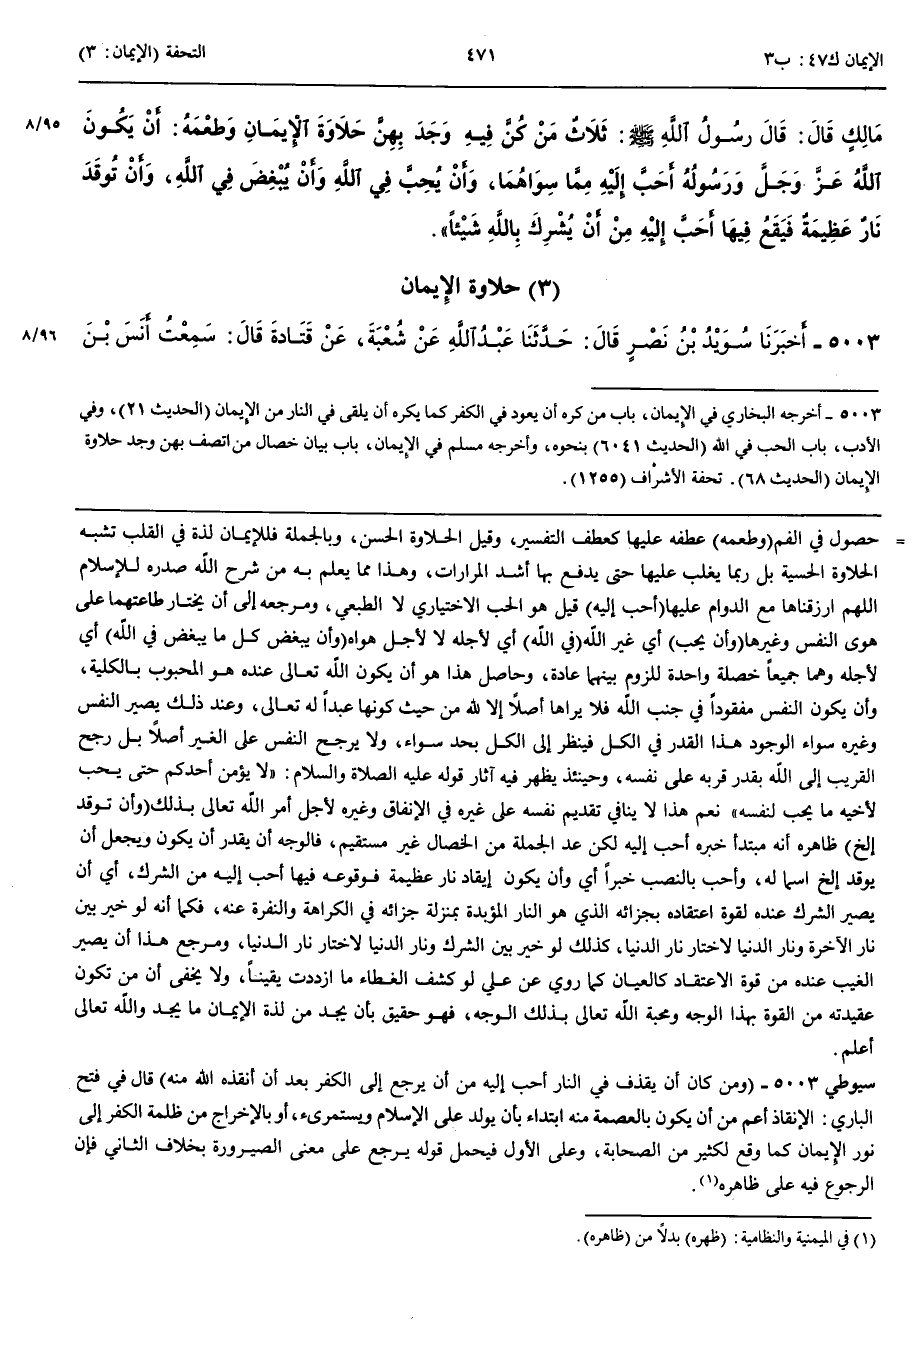 الإيمان ك٤٧: ب٣ ٤٧١ التحفة (الإيمان: ٣)
مَالِكٍ قَالَ: قَالَ رَسُولُ ٱللَّهِ ﷺ: ثَلَاثٌ مَنْ كُنَّ فِيهِ وَجَدَ بِهِنَّ حَلَاوَةَ ٱلْإِيمَانِ وَطَعْمَهُ: أَنْ يَكُونَ ٨/٩٥
ٱللَّهُ عَزَّ وَجَلَّ وَرَسُولُهُ أَحَبَّ إِلَيْهِ مِمَّا سِوَاهُمَا، وَأَنْ يُحِبَّ فِي ٱللَّهِ وَأَنْ يُبْغِضَ فِي ٱللَّهِ، وَأَنْ تُوقَدَ
نَارٌ عَظِيمَةٌ فَيَقَعُ فِيهَا أَحَبَّ إِلَيْهِ مِنْ أَنْ يُشْرِكَ بِٱللَّهِ شَيْئاً».
(٣) حلاوة الإيمان
٥٠٠٣ ـ أَخبَرَنَا سُوَيْدُ بْنُ نَصْرٍ قَالَ: حَدَّثَنَا عَبْدُٱللَّهِ عَنْ شُعْبَةَ، عَنْ قَتَادَةَ قَالَ: سَمِعْتُ أَنَسَ بْنَ ٨/٩٦
٥٠٠٣ ـ أخرجه البخاري في الإيمان، باب من كره أن يعود في الكفر كما يكره أن يلقى في النار من الإيمان (الحديث ٢١)، وفي
الأدب، باب الحب في الله (الحديث ٦٠٤١) بنحوه، وأخرجه مسلم في الإيمان، باب بيان خصال من اتصف بهن وجد حلاوة
الإيمان (الحديث ٦٨). تحفة الأشراف (١٢٥٥).
= حصول في الفم(وطعمه) عطفه عليها كعطف التفسير، وقيل الحلاوة الحسن، وبالجملة فللإيمان لذة في القلب تشبه
الحلاوة الحسية بل ربما يغلب عليها حتى يدفع بها أشد المرارات، وهذا مما يعلم به من شرح الله صدره للإسلام
اللهم ارزقناها مع الدوام عليها(أحب إليه) قيل هو الحب الاختياري لا الطبعي، ومرجعه إلى أن يختار طاعتهما على
هوى النفس وغيرها(وأن يحب) أي غير الله(في الله) أي لأجله لا لأجل هواه(وأن يبغض كل ما يبغض في الله) أي
لأجله وهما جميعاً خصلة واحدة للزوم بينهما عادة، وحاصل هذا هو أن يكون الله تعالى عنده هو المحبوب بالكلية،
وأن يكون النفس مفقوداً في جنب الله فلا يراها أصلاً إلا لله من حيث كونها عبداً له تعالى، وعند ذلك يصير النفس
وغيره سواء الوجود هذا القدر في الكل فينظر إلى الكل بحد سواء، ولا يرجح النفس على الغير أصلاً بل رجح
القريب إلى الله بقدر قربه على نفسه، وحينئذ يظهر فيه آثار قوله عليه الصلاة والسلام: «لا يؤمن أحدكم حتى يحب
لأخيه ما يحب لنفسه» نعم هذا لا ينافي تقديم نفسه على غيره في الإنفاق وغيره لأجل أمر الله تعالى بذلك(وأن توقد
إلخ) ظاهره أنه مبتدأ خبره أحب إليه لكن عد الجملة من الخصال غير مستقيم، فالوجه أن يقدر أن يكون ويجعل أن
يوقد إلخ اسما له، وأحب بالنصب خبراً أي وأن يكون إيقاد نار عظيمة فوقوعه فيها أحب إليه من الشرك، أي أن
يصير الشرك عنده لقوة اعتقاده بجزائه الذي هو النار المؤبدة بمنزلة جزائه في الكراهة والنفرة عنه، فكما أنه لو خير بين
نار الآخرة ونار الدنيا لاختار نار الدنيا، كذلك لو خير بين الشرك ونار الدنيا لاختار نار الدنيا، ومرجع هذا أن يصير
الغيب عنده من قوة الاعتقاد كالعيان كما روي عن علي لو كشف الغطاء ما ازددت يقيناً، ولا يخفى أن من تكون
عقيدته من القوة بهذا الوجه ومحبة الله تعالى بذلك الوجه، فهو حقيق بأن يجد من لذة الإيمان ما يجد والله تعالى
أعلم.
سيوطي ٥٠٠٣ ـ (ومن كان أن يقذف في النار أحب إليه من أن يرجع إلى الكفر بعد أن أنقذه الله منه) قال في فتح
الباري: الإنقاذ أعم من أن يكون بالعصمة منه ابتداء بأن يولد على الإسلام ويستمرىء، أو بالإخراج من ظلمة الكفر إلى
نور الإيمان كما وقع لكثير من الصحابة، وعلى الأول فيحمل قوله يرجع على معنى الصيرورة بخلاف الثاني فإن
الرجوع فيه على ظاهره(١).
(١) في الميمنية والنظامية: (ظهره) بدلاً من (ظاهره).